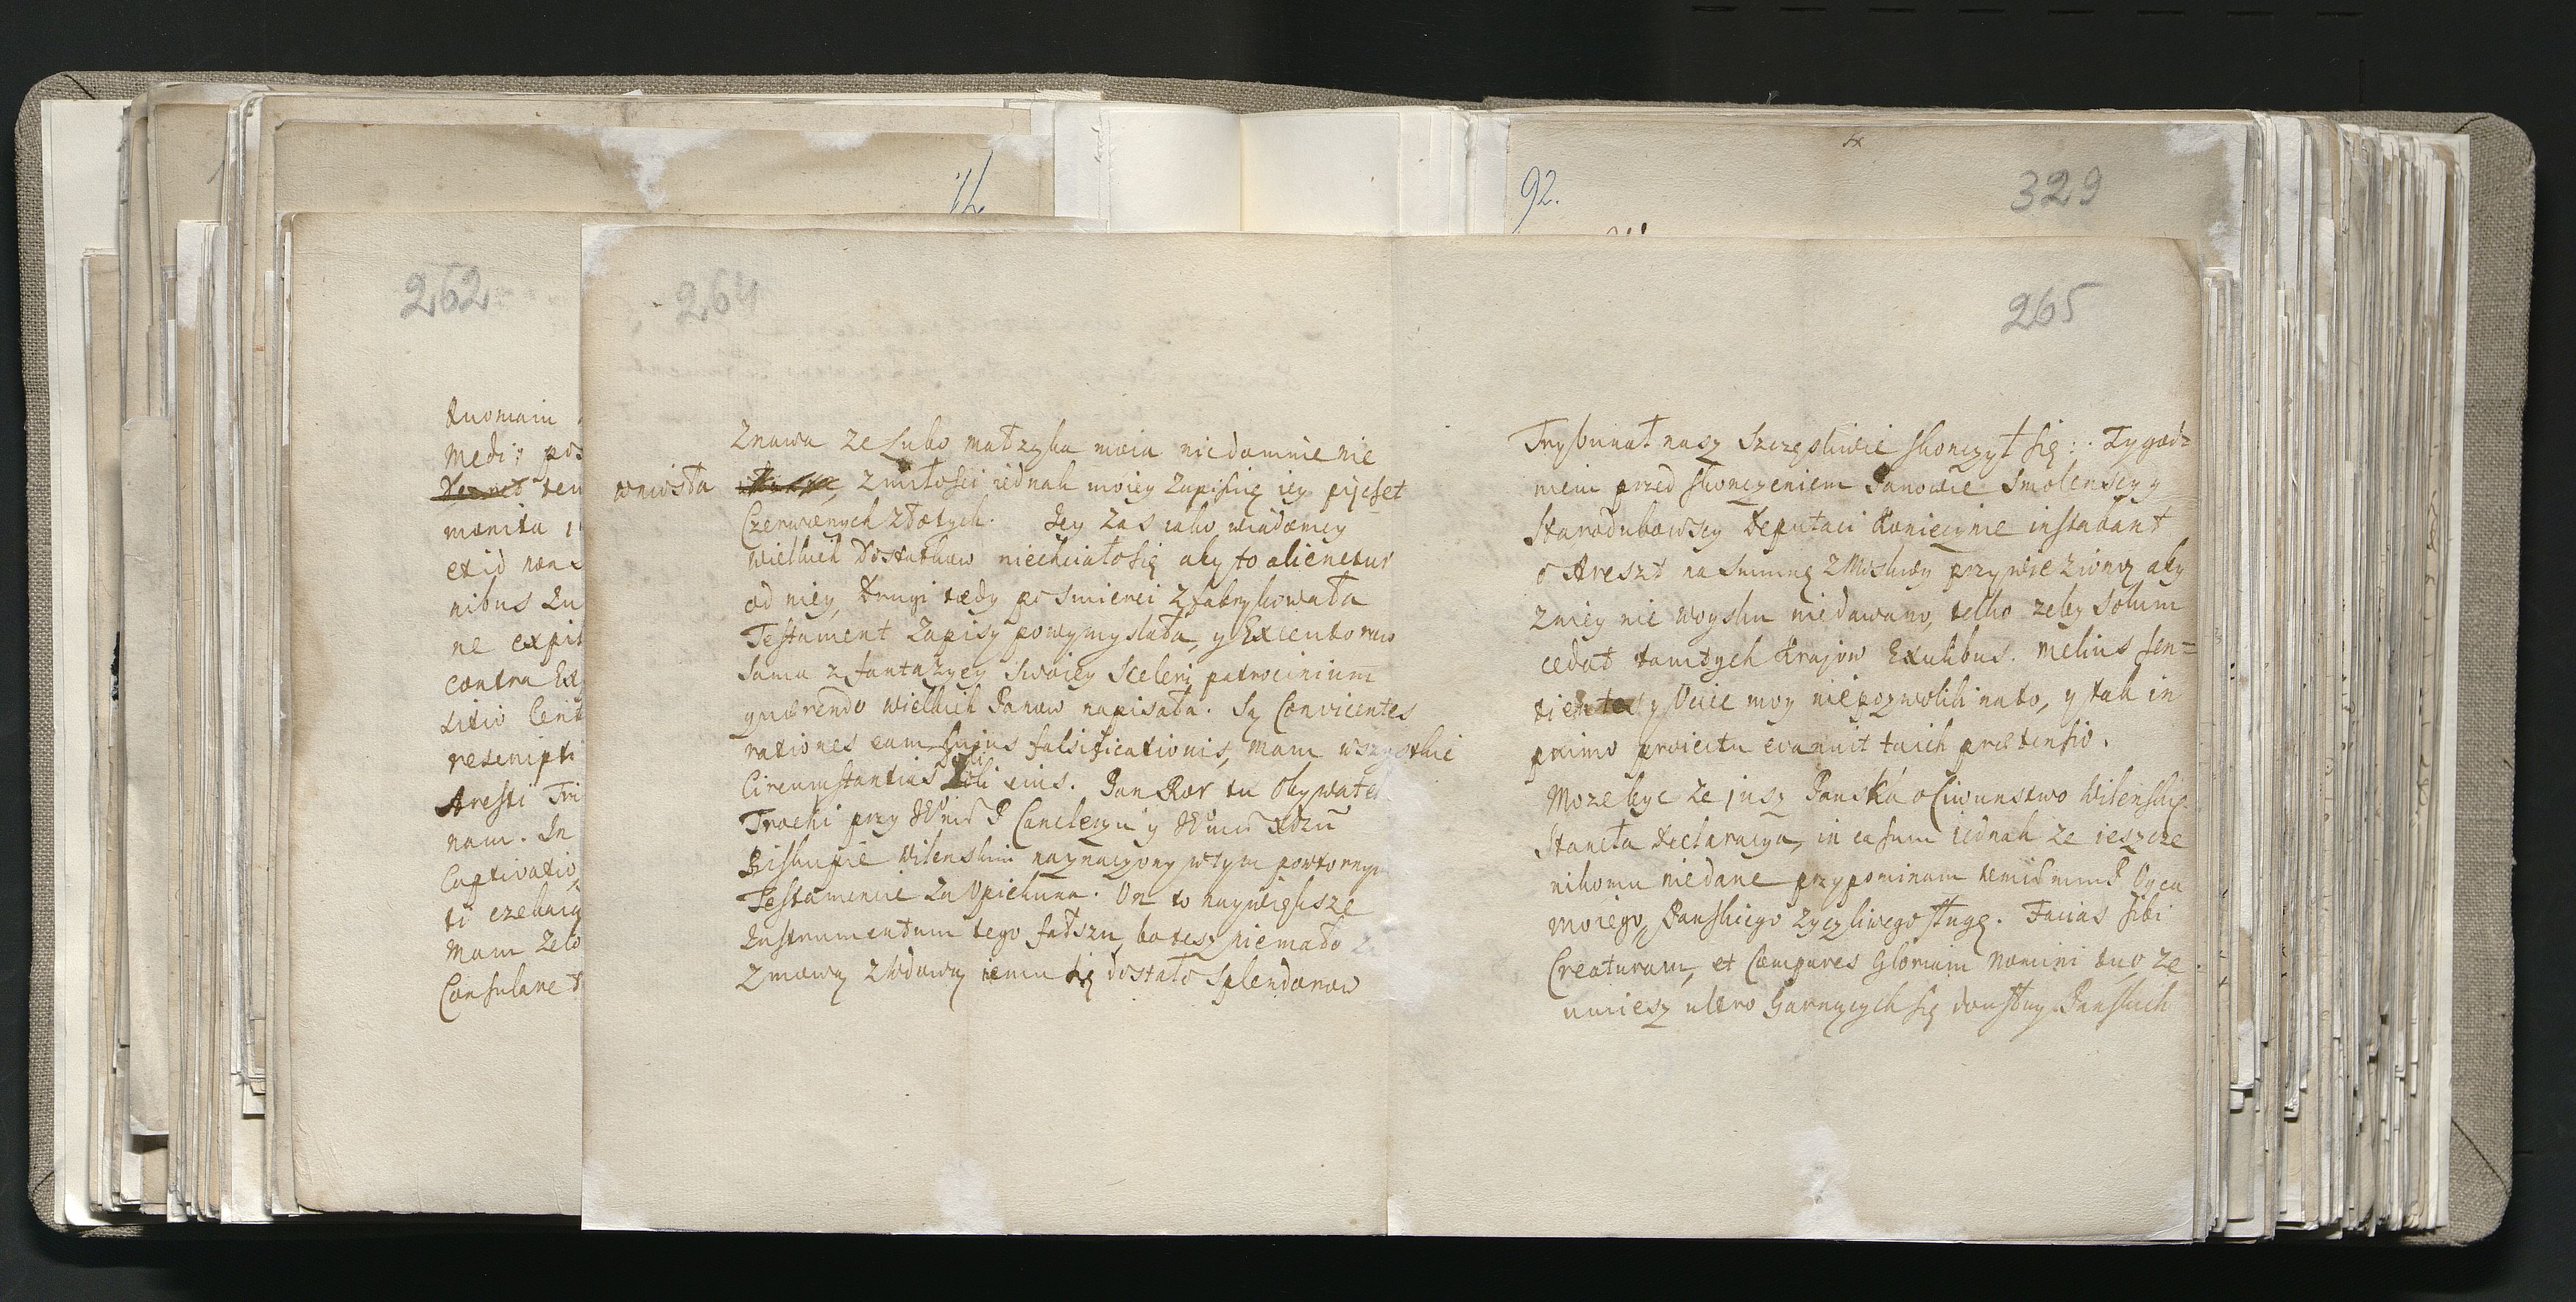 262
Medi
manita
et id non
nibus
ne
contra
rescripti
Aresti Tri
nam. In
Captivatio
ti
Mam
Consulare
264
znawa ze Lubo małząka moia nicdomnie nie
wniosła z miłosci iednak moiey Zapisuię iey pięcset
Czerwonych złotych. Iey zas iako wiadomey
wielkich Dostatkow niechciało się aby to alienetur
od niey, Drugi tedy po smierci zfabrykowała
Testament Zapisy powymyslała, y Exceutorow
sama z fantazyey swoiey Sceleri patrocinium
quærendo wielkich Panow napisała. Są Convicentes
rationes eam huius falsificationis, mam wszystkie
Circumstantias doli eius. Pan Ror tu Obywatel
Trocki przy P Canclerzu y Xdzu
Biskupie Wilenskim naznaczony w tym powtornym
Testamencie za Opiekuna. On to naywiększe
Instrumentum tego fałszu, bo tesz niemało
zmową z wdową iemu się dostało Splendorow
92.
329
265
Trybunał nasz Szczęsliwie skonczył się: Tygod=
niem przed skonczeniem Panowie Smolenscy y
Starodubowscy Deputaci Koniecznie instabant
o Areszt na Summę z Moskwy przywiezioną aby
z niey nic woysku niedawano, telko zeby Solum
cedat tamtych Krajow Exulibus. Melius sen=
tientes y Ociec moy niepozwolili na to, y tak in
primo proiectu evanuit taich prætensio.
Moze byc ze jusz Panska o Ciwunstwo Wilenskie
Staneła declaracya, in casum iednak ze ieszcze
nikomu niedane przypominam Oyca
moiego, Panskiego zyczliwego sługę. Facias sibi
Creaturam, et Compares Gloriam nomini tuo, ze
umiesz ultro Garnących się do usług Panskich